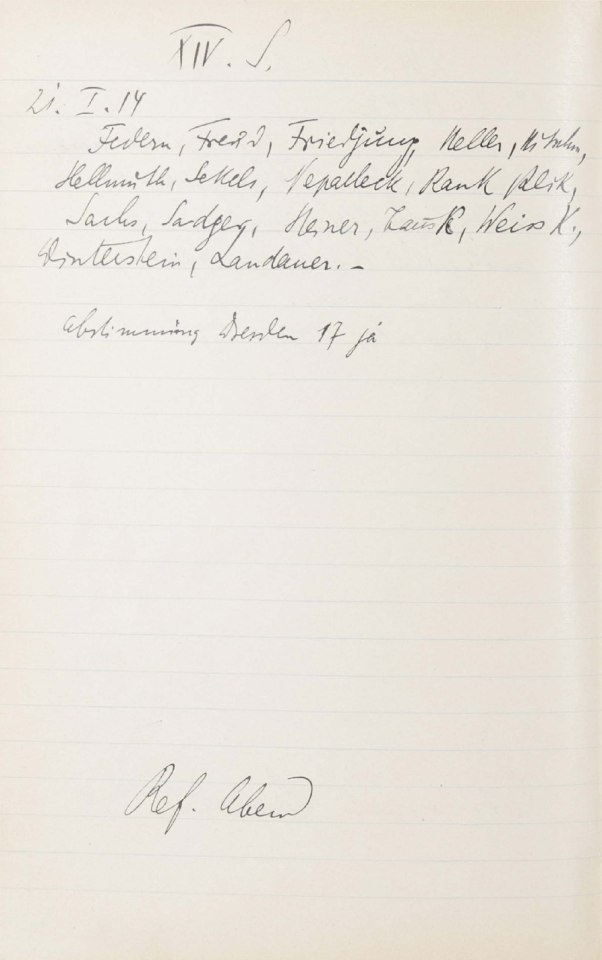 XIV. S.
21. I. 14
Federn, Freud, Friedjung, Heller, Hitschm,
Hellmuth, Jekels, Nepalleck, Rank Reik,
Sachs, Sadger, Steiner, Tausk, Weiss K.,
Winterstein, Landauer. –
Abstimmung Dresden 17 ja
Ref. Abend